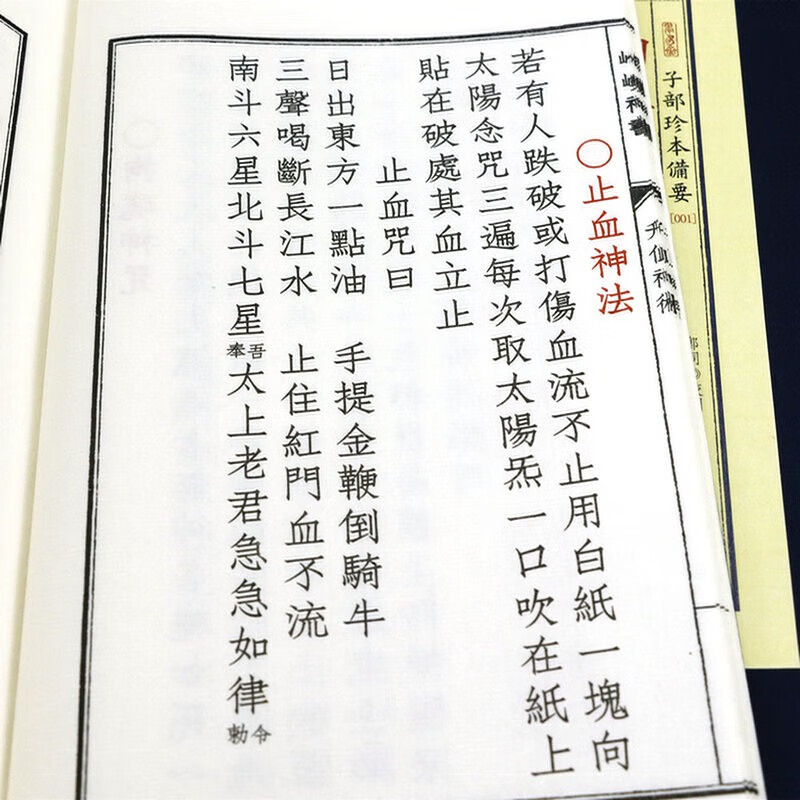 〇止血神法
若有人跌破或打傷血流不止用白紙一塊向
太陽念咒三遍每次取太陽炁一口吹在紙上
貼在破處其血立止
止血咒曰
日出東方一點油 手提金鞭倒騎牛
三聲喝斷長江水 止住紅門血不流
南斗六星北斗七星吾奉太上老君急急如律令勅
子部珍本備要
[001]